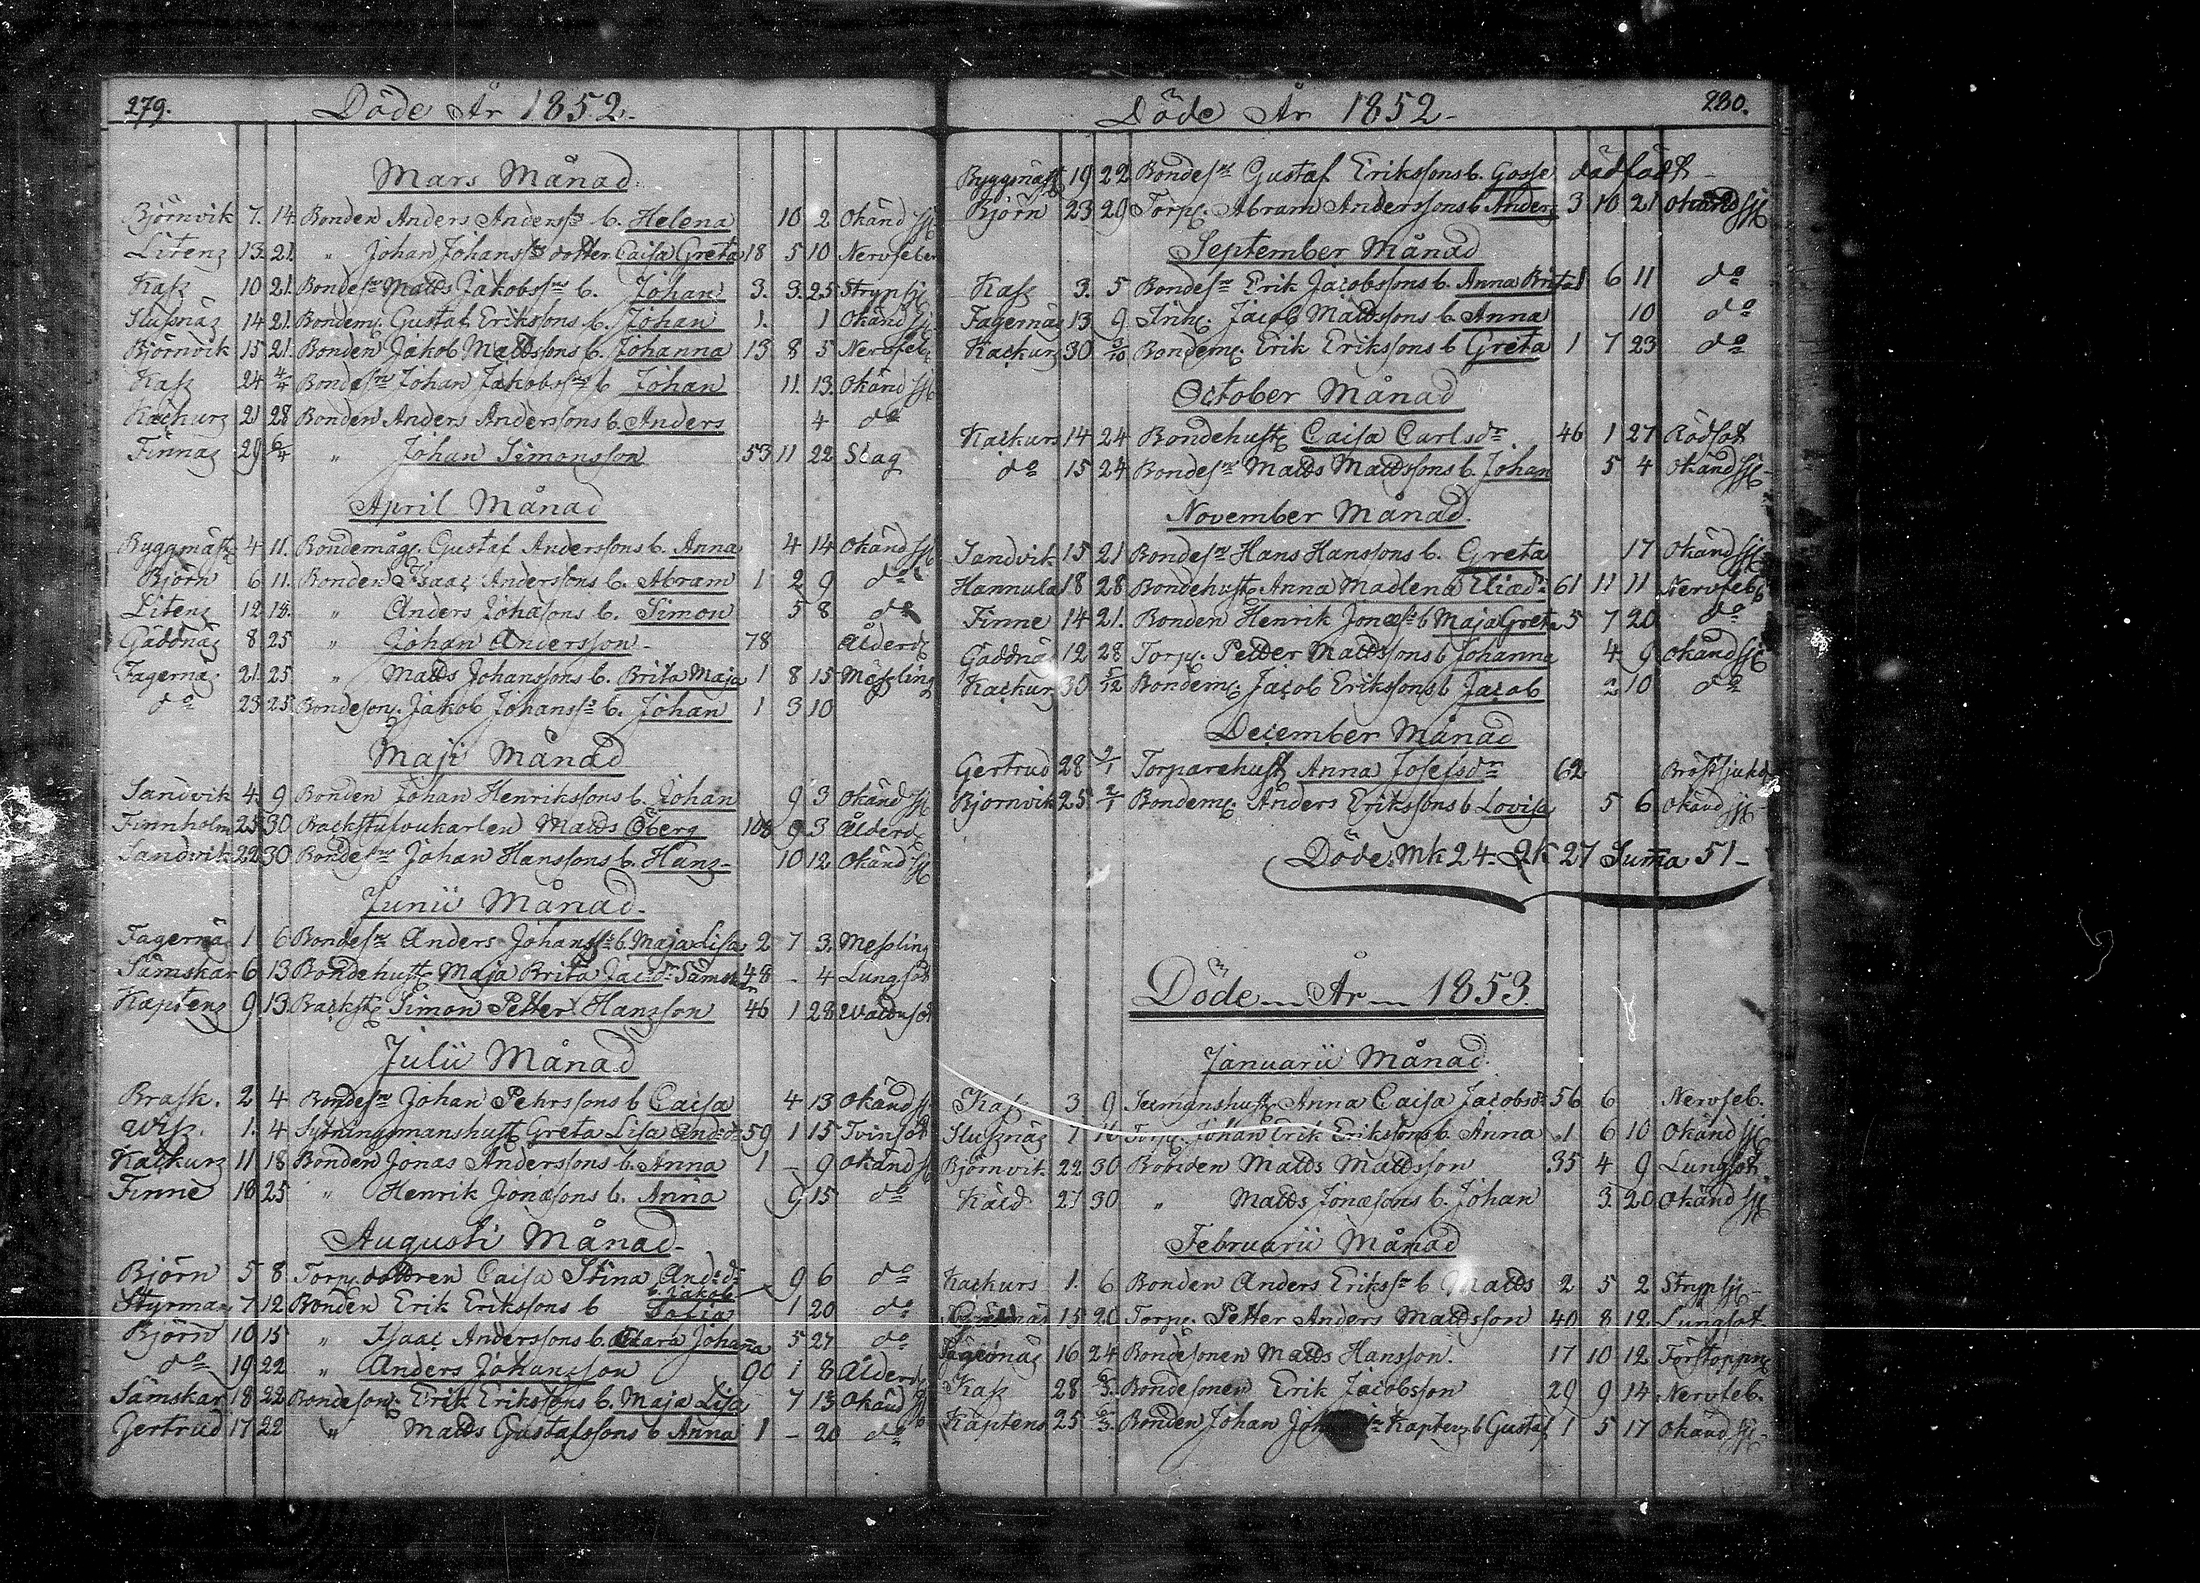 279.
Döde År 1852.
Mars Månad.
Björnvik 7. 14. Bonden Anders Anderss:s b. Helena 10 2 Okänd sj
Litens 13. 21. " Johan Johanss:s dotter Caisa Greta 18 5 10 Nervfeber
Kass 10 21. Bondes:n Matts Jakobss:s b. Johan 3. 3. 25 Strypsj
Slussnäs 14 21. Bondem. Gustaf Erikssons b. Johan 1. 1 Okänd sj
Björnvik 15 21. Bonden Jakob Mattssons b. Johanna 13 8 5 Nervfeb
Kass 24 4/4 Bondes:n Johan Jakobss:s b Johan 11. 13. Okänd sj
Kackurs 21 28 Bonden Anders Anderssons b. Anders 4 do
Finnäs 29 6/4 " Johan Simonsson 53 11 22 Slag
April Månad
Byggmäst 4 11. Bondemåg. Gustaf Anderssons b. Anna 4 14 Okänd sj
Björn 6 11. Bonden Isaac Anderssons b. Abram 1 2 9 do
Litens 12 18. " Anders Johassons b. Simon 5 8 do
Gäddnäs 8 25 " Johan Andersson 78 Ålderd
Fagernäs 21. 25 " Matts Johanssons b. Brita Maja 1 8 15 Mässling
do 23 25 Bondeson. Jakob Johanss:s b. Johan 1 3 10
Maji Månad
Sandvik 4. 9 Bonden Johan Henrikssons b. Johan 9 3 Okänd sj
Finnholm 25 30 Backstufvukarlen Matts Öberg 108 9 3 Ålderd
Sandvik 22 30 Bondes:n Johan Hanssons b. Hans 10 12 Okänd sj
Junii Månad
Fagernäs 1 6 Bondes:n Anders Johanss:s b. Maja Lisa 2 7 3. Messling
Sämskar 6 13 Bondehust. Maja Brita Jac:dr Sämsk 48 - 4 Lungsot
Kaptens 9 13 Backst. Simon Petter Hansson 46 1 28 Wattusot
Julii Månad
Brask. 2 4 Bondes:n Johan Pehrssons b Caisa 4 13 Okänd sj
Wiss. 1. 4 Sytningsmanshust Greta Lisa And:dr 59 1 15 Tvinsot
Kackurs 11 18 Bonden Jonas Anderssons b. Anna 1 - 9 Okänd sj
Finne 18 25 " Henrik Jonæsons b. Anna 9 15 do
Augusti Månad
Björn 5 8 Torp. dottren Caisa Stina And:dr b. Jakob 9 6 do
Styrmans 7 12 Bonden Erik Erikssons b Sofia 1 20 do
Björn 10 15 " Isaac Anderssons b. Clara Johanna 5 27 do
do 19 22 " Anders Johansson 90 1 8 Ålderd
Sämskar 18 22 Bondeson. Erik Erikssons b. Maja Lisa 7 13 Okänd sj
Gertrud 17 22 " Matts Gustafssons b Anna 1 - 20 do
Döde År 1852
280.
Byggmäst 19 22 Bondes:n Gustaf Erikssons b. Gosse dödfödt
Björn 23 29 Torp. Abram Anderssons b. Anders 3 10 21 Okänd sj
September Månad
Kass 3. 5 Bondes:n Erik Jacobssons b. Anna Brita 1 6 11 do
Fagernäs 13 9 Inh. Jacob Mattssons b. Anna 10 do
Kackurs 30 3/10 Bondem. Erik Erikssons b Greta 1 7 23 do
October Månad
Kackurs 14 24 Bondehust. Caisa Carlsdr. 46 1 27 Rödsot
do 15 24 Bondes:n Matts Mattssons b. Johan 5 4 Okänd sj
November Månad
Sandvik 15 21 Bondes:n Hans Hanssons b. Greta 17 Okänd sj
Hannula 18 28 Bondehust. Anna Madlena Eliæd: 61 11 11 Nervfeb
Finne 14 21. Bonden Henrik Jonæs:s b Maja Greta 5 7 20 do
Gäddnäs 12 28 Torp. Petter Mattssons b Johanna 4 9 Okänd sj
Kackurs 30 5/12 Bondem. Jacob Erikssons b Jacob 2 10 do
December Månad
Gertrud 28 2/1 Torparehust Anna Josefsdr 62 Bröstsjukd
Björnvik 25 2/1 Bondem. Anders Erikssons b Lovisa 5 6 Okänd sj
Döde: Mk 24. Qk 27 Summa 51
Döde År 1853
Januarii Månad
Skas 3 9 Seimanshust. Anna Caisa Jacobsdr 56 6 Nervfeb.
Slussnäs 1 16 Torp. Johan Erik Erikssons b. Anna 1 6 10 Okänd sj
Björnvik 22 30 Bonden Matts Mattsson 35 4 9 Lungsot
Käld 27 30 " Matts Jonæsons b. Johan 3. 20 Okänd sj
Februarii Månad
Kackurs 1. 6 Bonden Anders Erikss:n b. Matts 2 5 2 Strypsj
Gäddnäs 15 20 Torp. Petter Anders Mattsson 40 8 12 Lungsot
Fagernäs 16 24 Bondesonen Matts Hansson. 17 10 12 Förstoppn
Kass 28 6/3 Bondesonen Erik Jacobsson 29 9 14 Nervfeb.
Kaptens 25 6/3. Bonden Johan Kaptens b Gustaf 1 5 17 Okänd sj